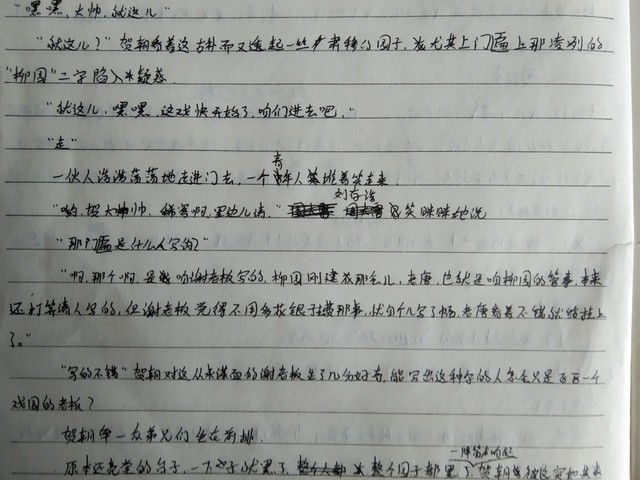 "嘿嘿,大帅,就这儿"
"就这儿?"贺朝看着这古朴而又透起一丝肃穆的园子,尤其上门匾上那凌别的
"柳园"二字陷入疑惑.
"就这儿,嘿嘿,这戏快开始了,咱们进去吧."
"走"
一伙人浩浩荡荡地走进门去,一个青年人堆着笑走来.
"哟,贺大帅,稀客啊,里边儿请."刘存浩笑咪咪地说
"那门匾是什么人写的?"
"啊,那个啊,是咱谢老板写的,柳园刚建成那会儿,老唐,也就是咱柳园的管事,本来
还打算请人写的,但谢老板觉得不用多花银子搭那事,就自个儿写了幅,老唐看着不错就给挂上
了."
"写的不错"贺朝对这从未谋面的谢老板生了几分好奇,能写出这种字的人怎么只是一个
戏园的老板?
贺朝和一众弟兄们坐在前排.
原本还亮堂的台子,一下子就黑了,整个园子都黑了,一阵箫声响起 贺朝被这突如其来